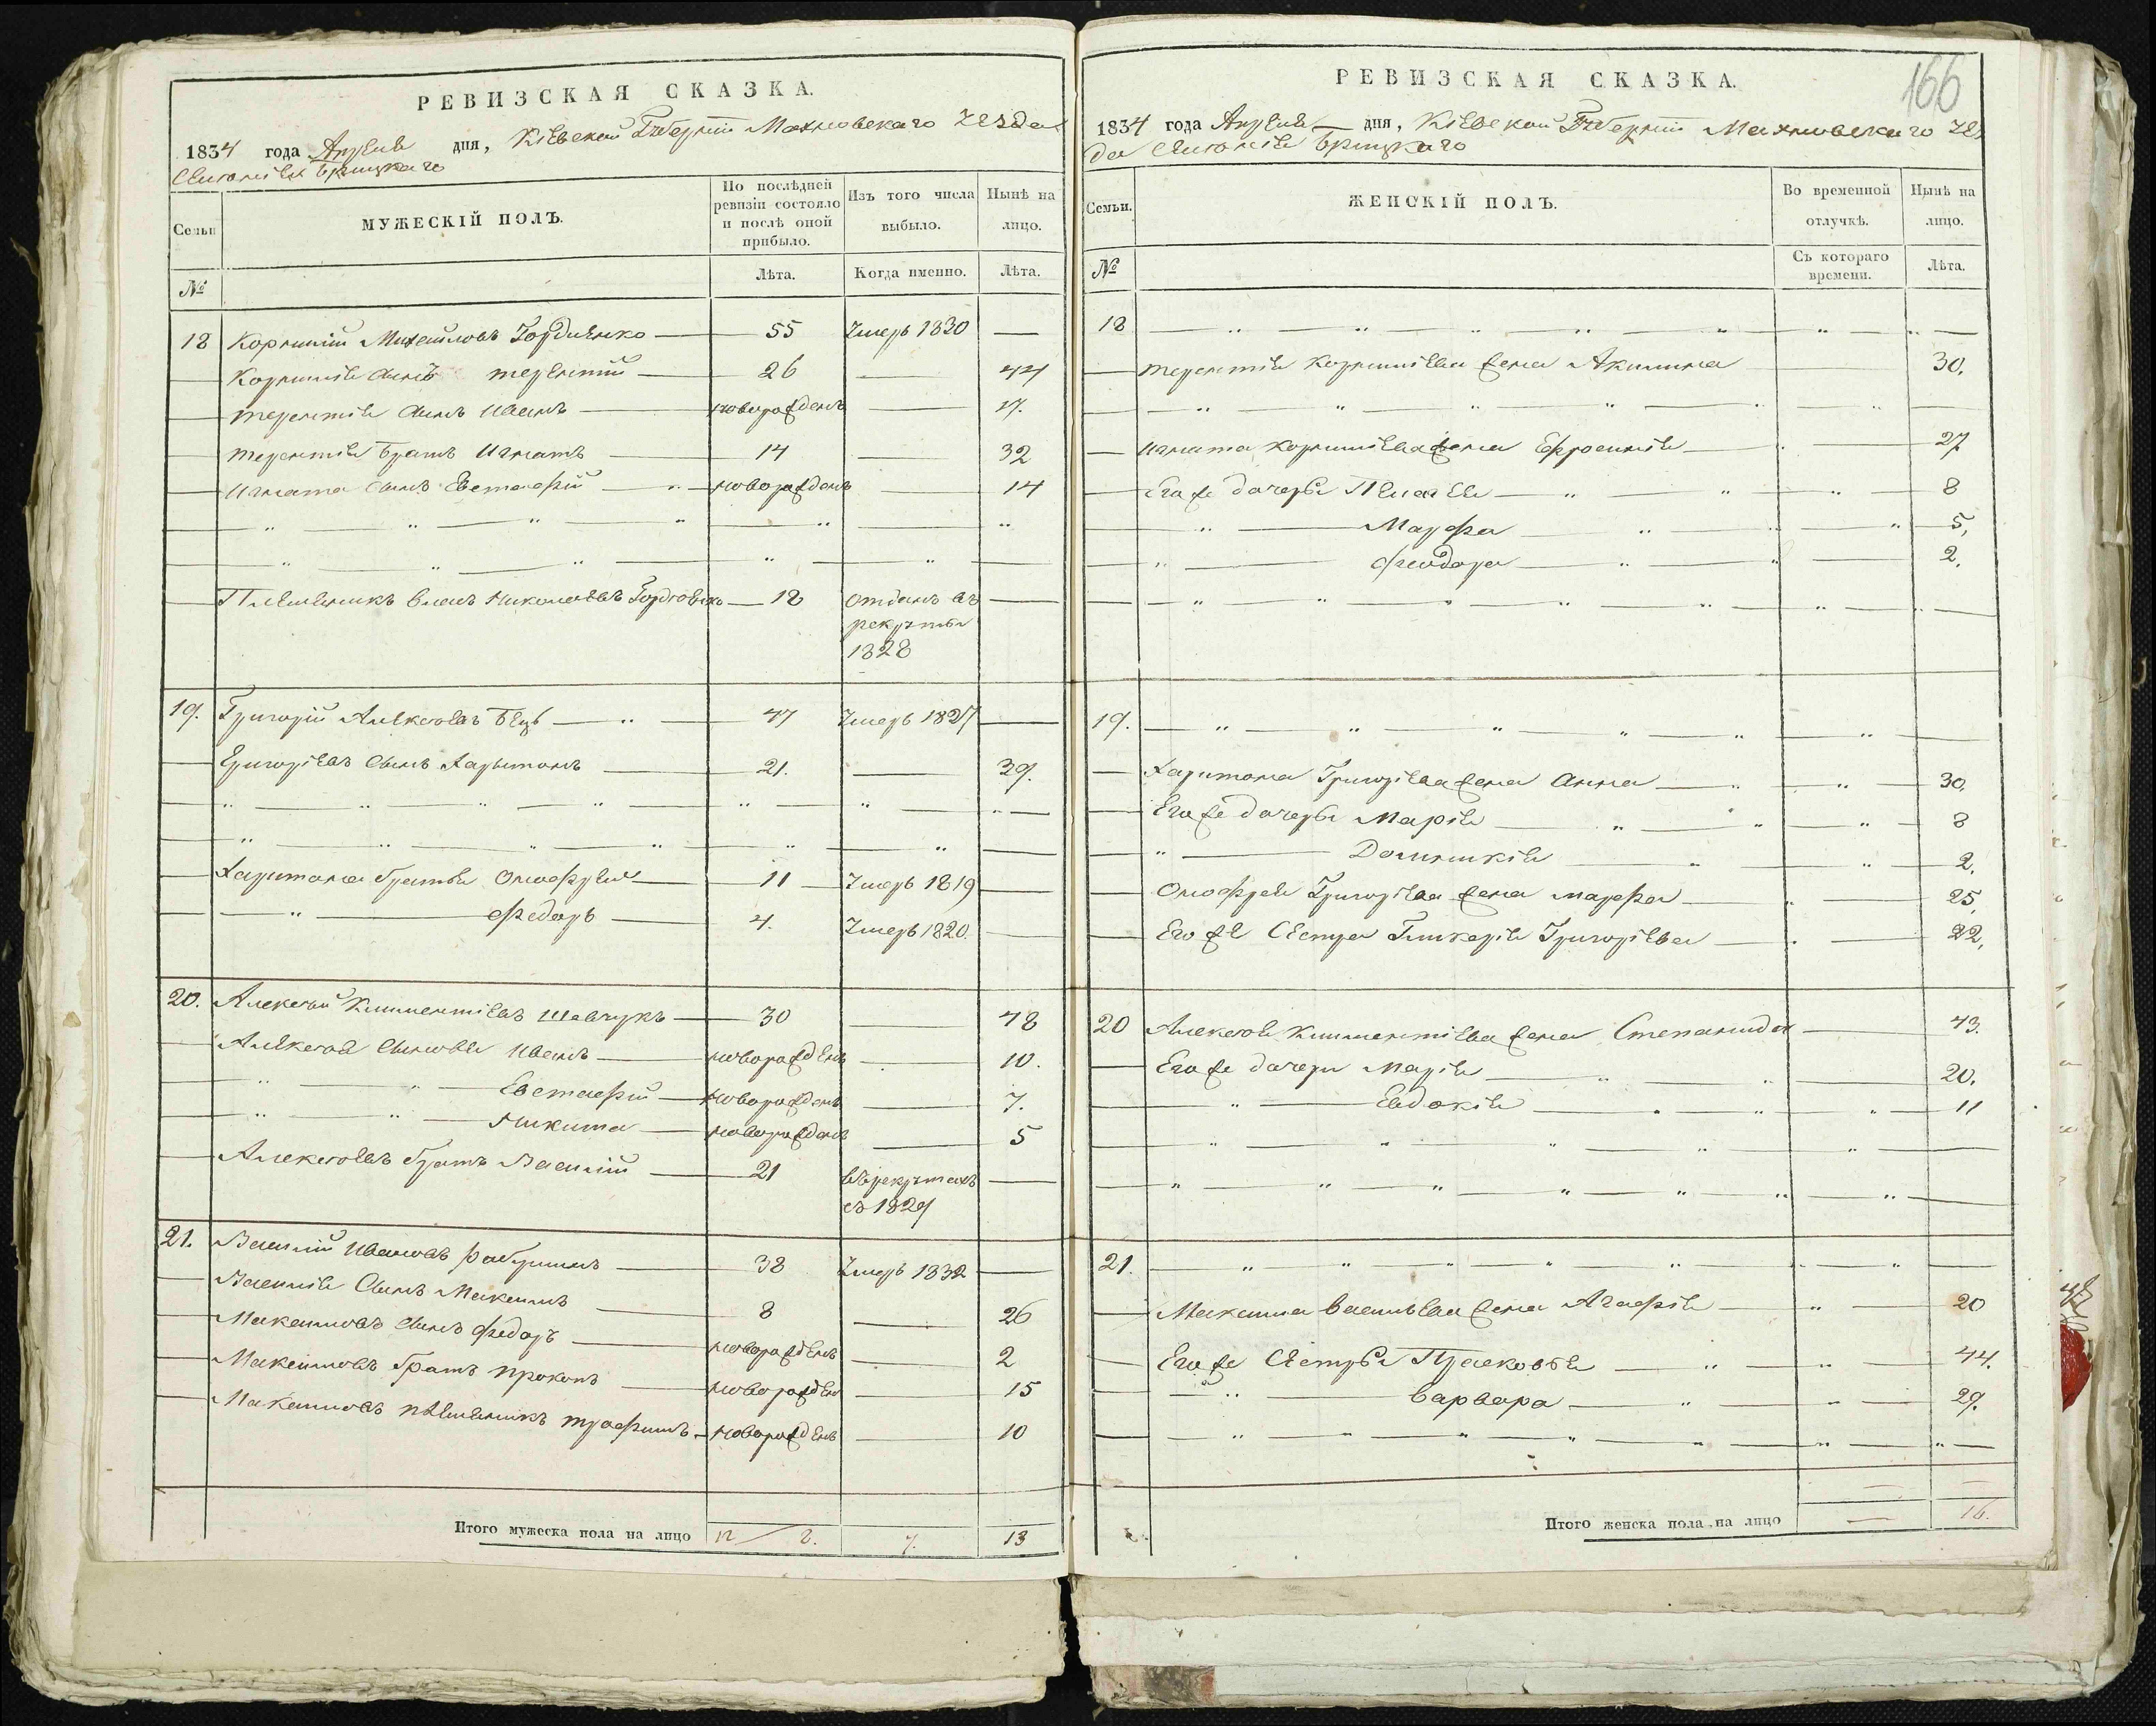 РЕВИЗСКАЯ СКАЗКА.
1834 года Апреля дня, Кіевской Губерніи Махновскаго Уезда
Селенія Брицкаго
Семьи
МУЖЕСКІЙ ПОЛЪ.
По послѣдней ревизіи состояло и послѣ оной прибыло.
Изъ того числа выбыло.
Нынѣ на лицо.
№
Лѣта.
Когда именно.
Лѣта.
18 Корнилій Михайловъ Гордіенко 55 Умеръ 1830 —
Корнилія сынъ Терентій 26 — 44
Терентія сынъ Иванъ новорожденъ — 17.
Терентія братъ Игнатъ 14 — 32
Игната сынъ Евстафій новорожденъ — 14
Племенникъ Николаевъ 18 отданъ въ
рекруты
1828
19. Григорій Алексеевъ Бецъ 47 Умеръ 1827 —
Григоріевъ сынъ Харитонъ 21. — 39.
Харитона братья Онофрей 11 Умеръ 1819 —
" Федоръ 4. Умеръ 1820. —
20. Алексей Климентіевъ Шевчукъ 30 — 48
Алексея сыновья Иванъ новорожденъ — 10.
" " Евстафій новорожденъ — 7.
" " Никита новорожденъ — 5
Алексеевъ братъ Василій 21 въ рекрутахъ —
съ 1829
21. Василій Ивановъ 38 Умеръ 1832 —
Василія сынъ Максимъ 8 — 26
Максимовъ сынъ Федоръ новорожденъ — 2
Максимовъ братъ Прокопъ новорожден — 15
Максимовъ племенникъ Трофимъ новорожденъ — 10
Итого мужеска пола на лицо 12/8. 7. 13
166
РЕВИЗСКАЯ СКАЗКА.
1834 года Апреля — дня, Кіевской Губерніи Махновскаго Уез
да Селенія Брицкаго
Семьи.
ЖЕНСКІЙ ПОЛЪ.
Во временной отлучкѣ.
Нынѣ на лицо.
№
Съ котораго времени.
Лѣта.
18
Терентія Корниліева жена Акилина 30.
Игната Корниліева жена Ефросинія 27
Его же дочеры Пелагея 8
" Марфа 5,
" Феодора 2,
19.
Харитона Григоріева жена Анна 30,
Его же дочеры Марія 8
" Домникія 2,
Онофрея Григоріева жена Марфа 25,
Его же сестра Гликерія Григоріева 22,
20 Алексея Климентіева жена Степанида 43.
Его же дочери Марія 20.
" Евдокія 11
21.
Максима Васильева жена Агафія 20
Его же сестры Прасковья 44.
" Варвара 29.
Итого женска пола на лицо — 16.